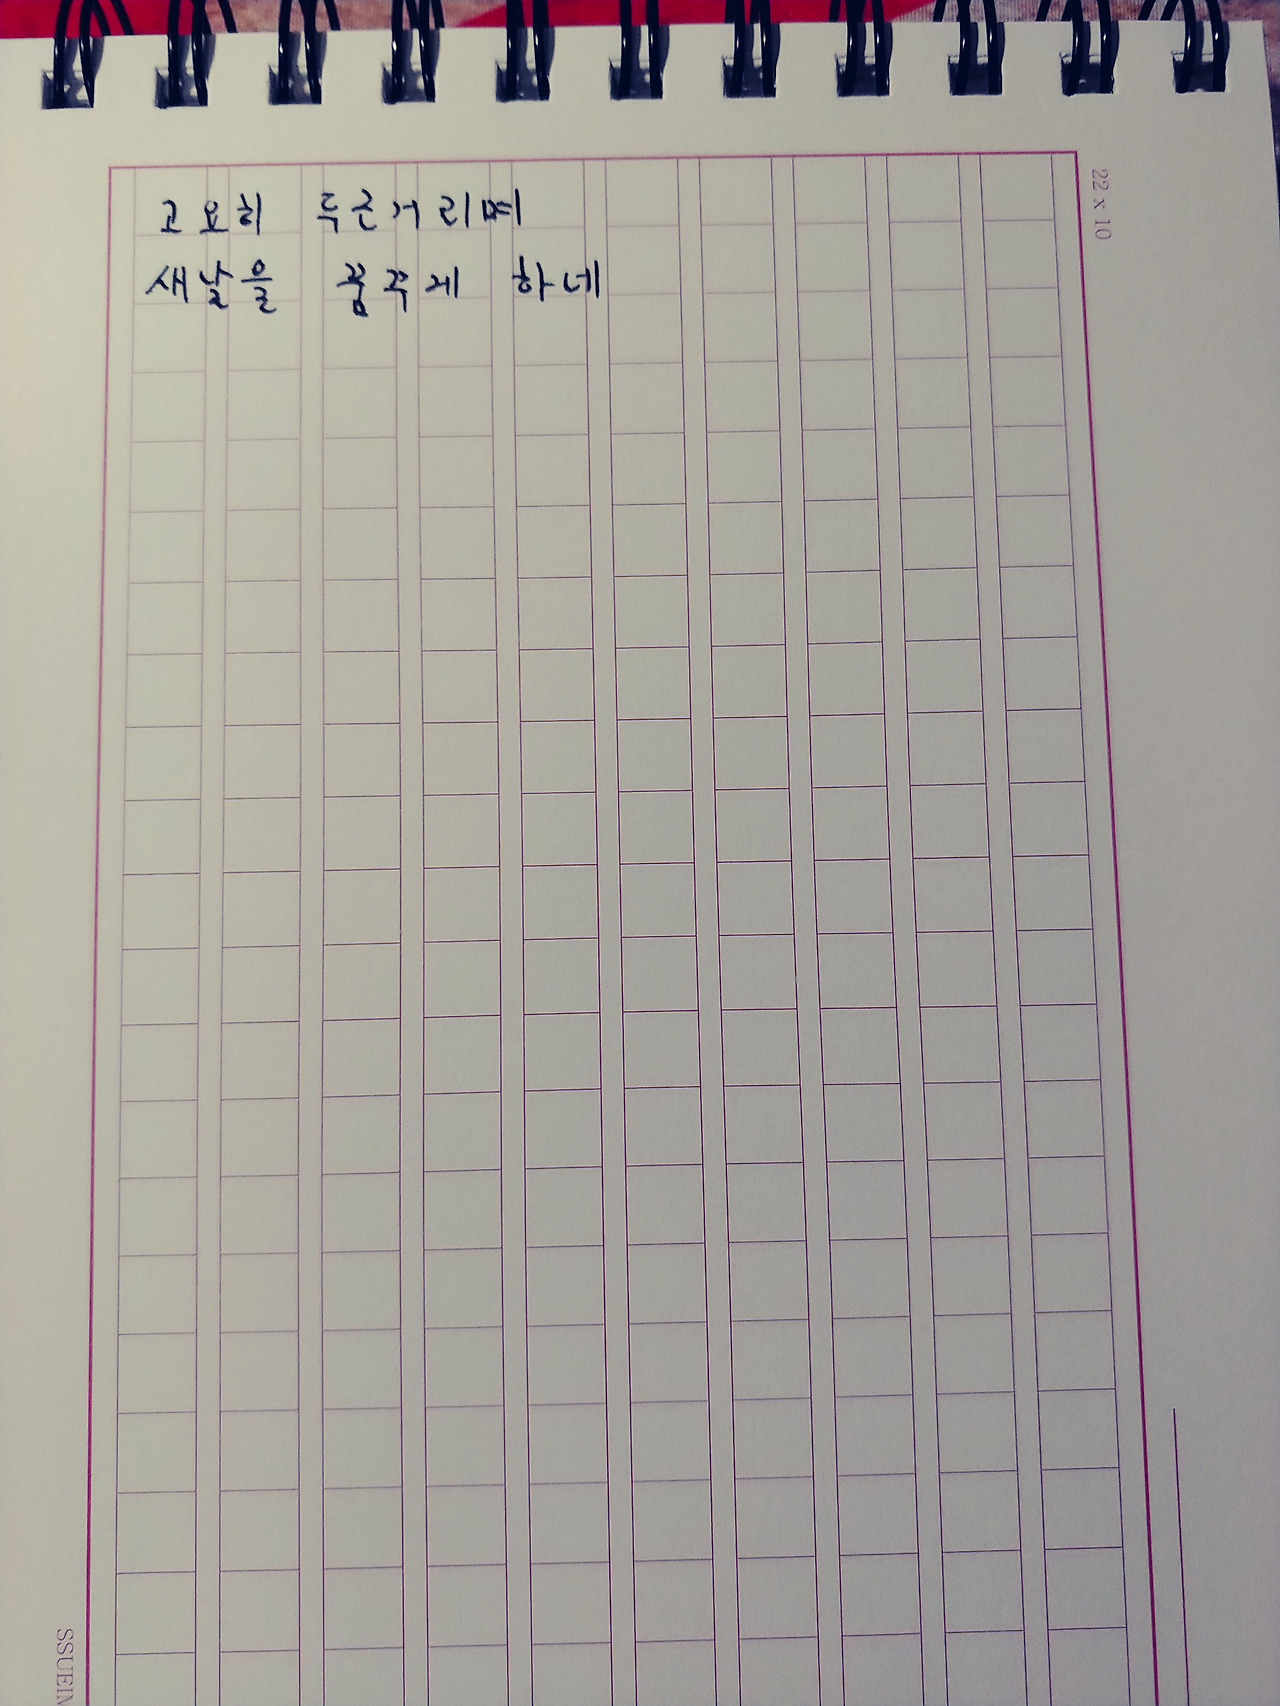 고요히 두근거리며
새날을 꿈꾸게 하네
22 x 10